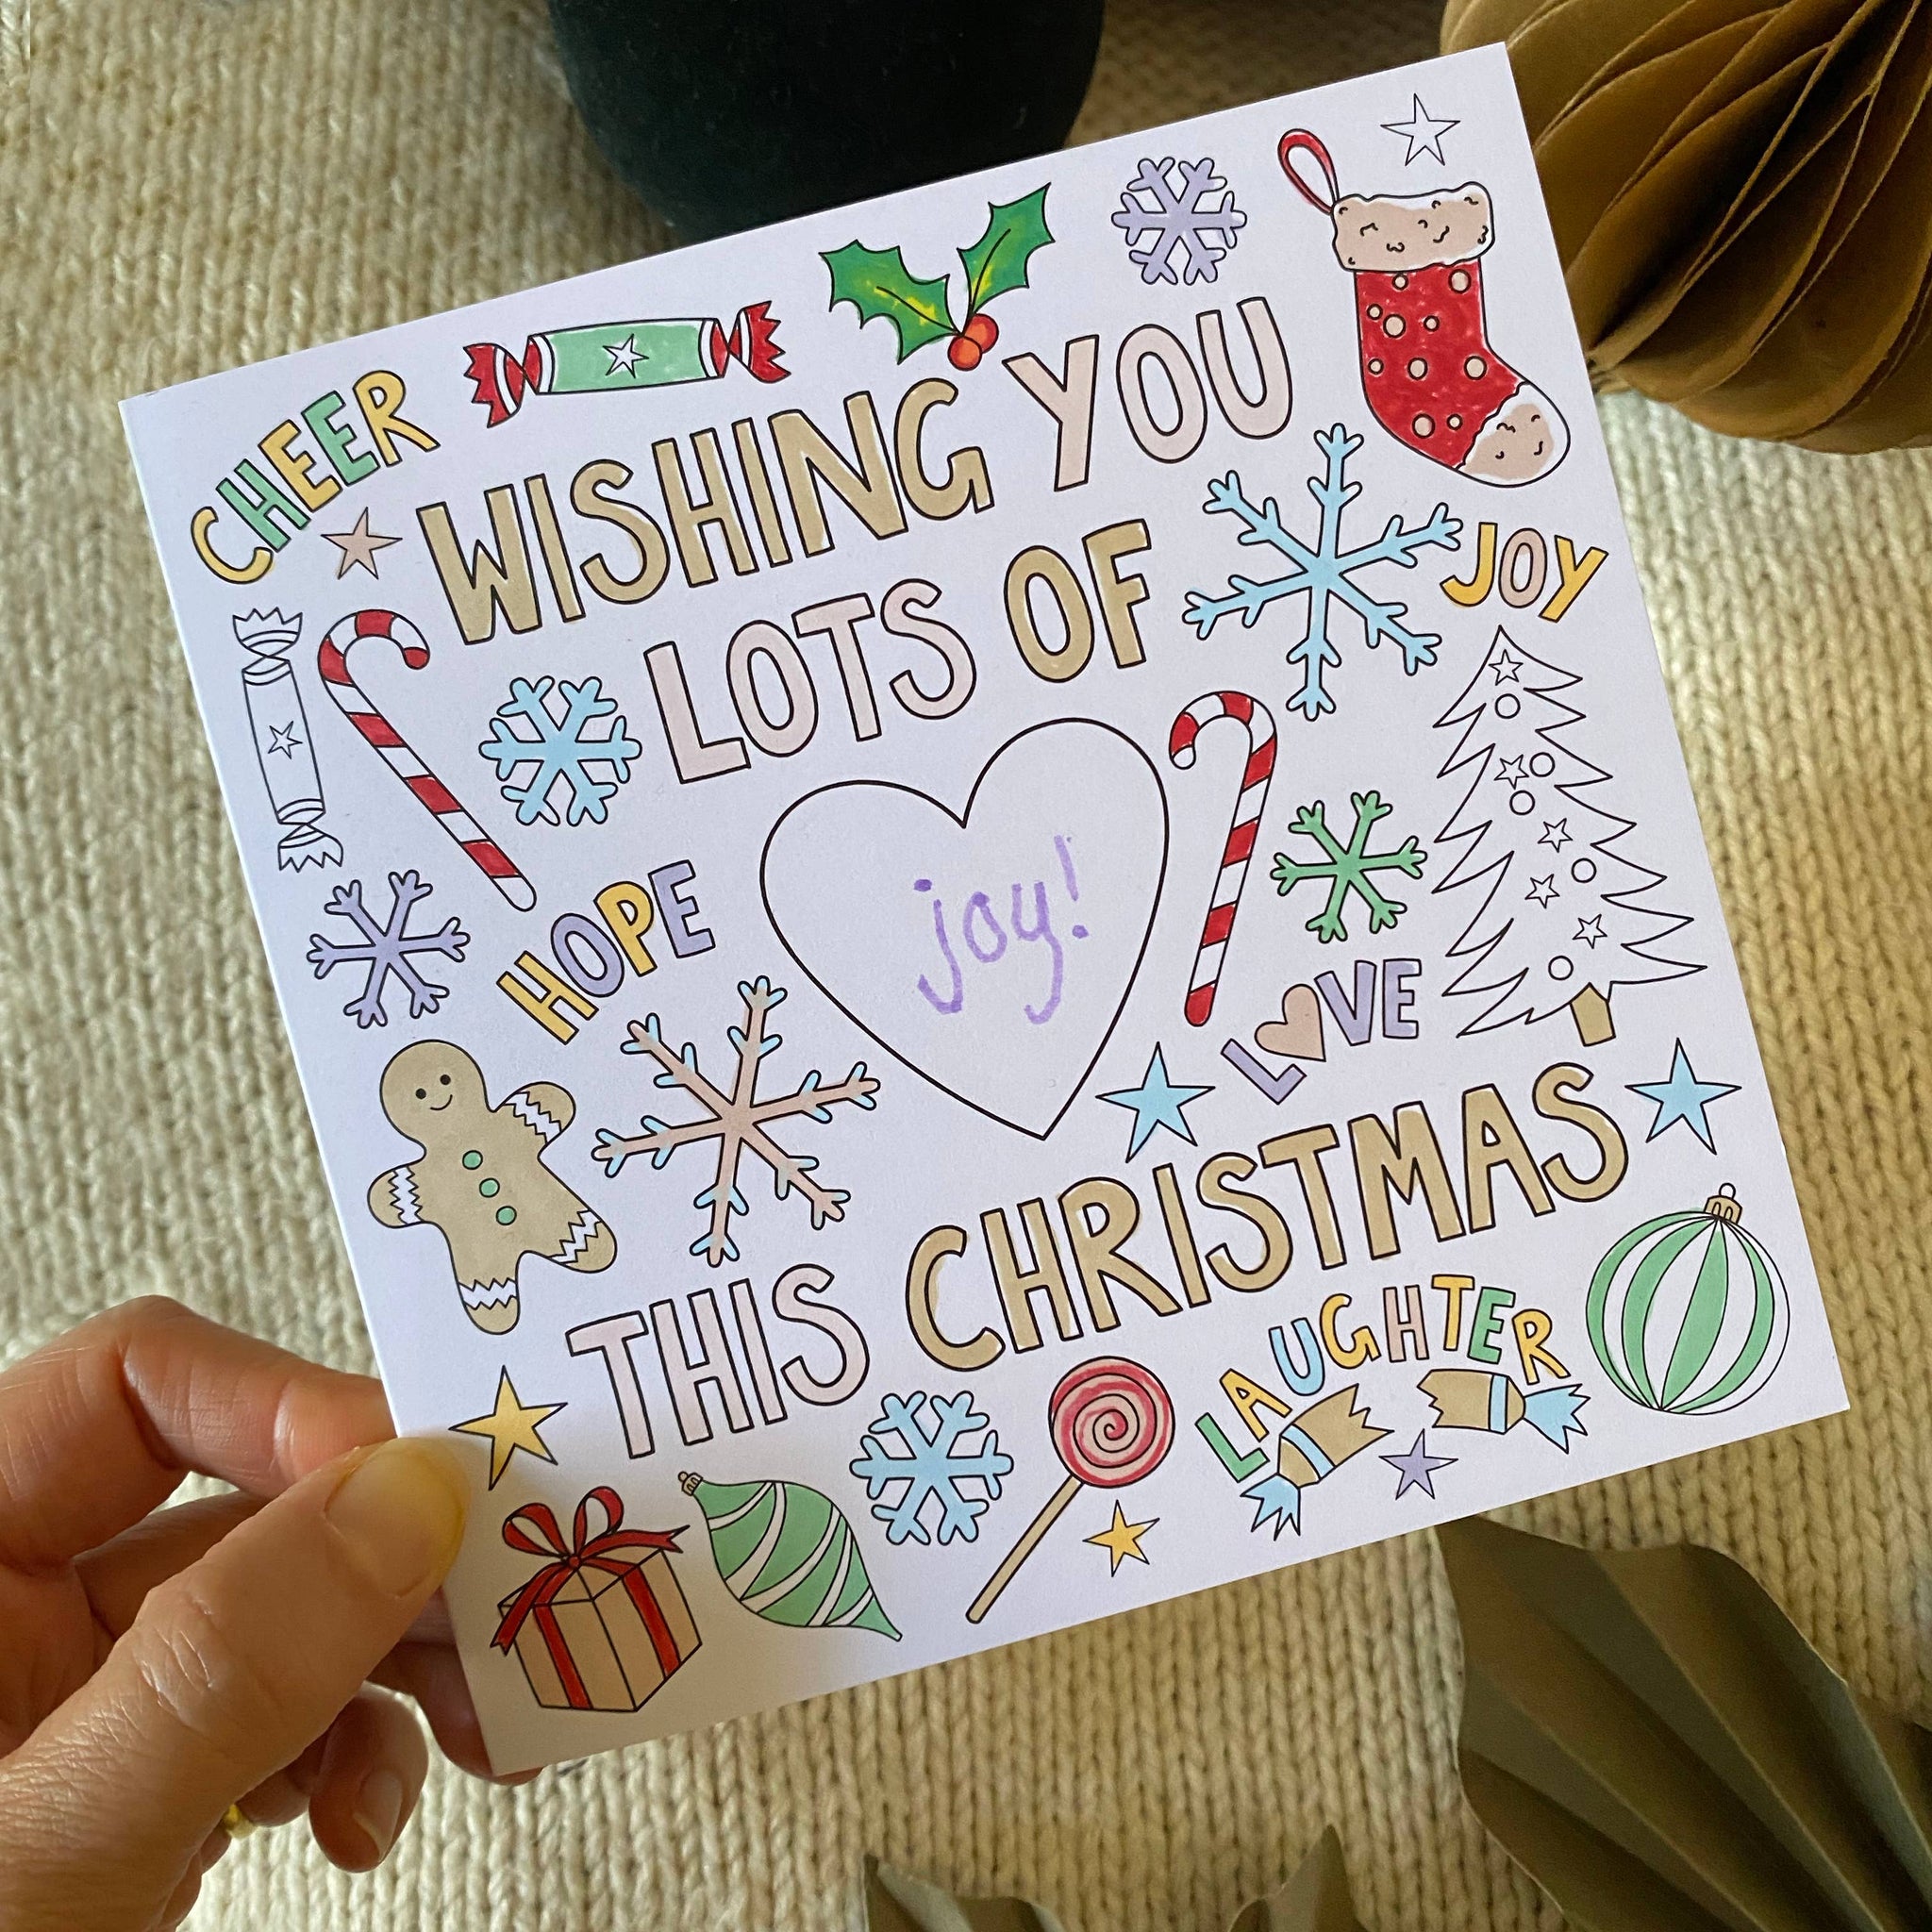 CHEER
WISHING YOU
LOTS OF
JOY
joy!
HOPE
LOVE
THIS CHRISTMAS
LAUGHTER